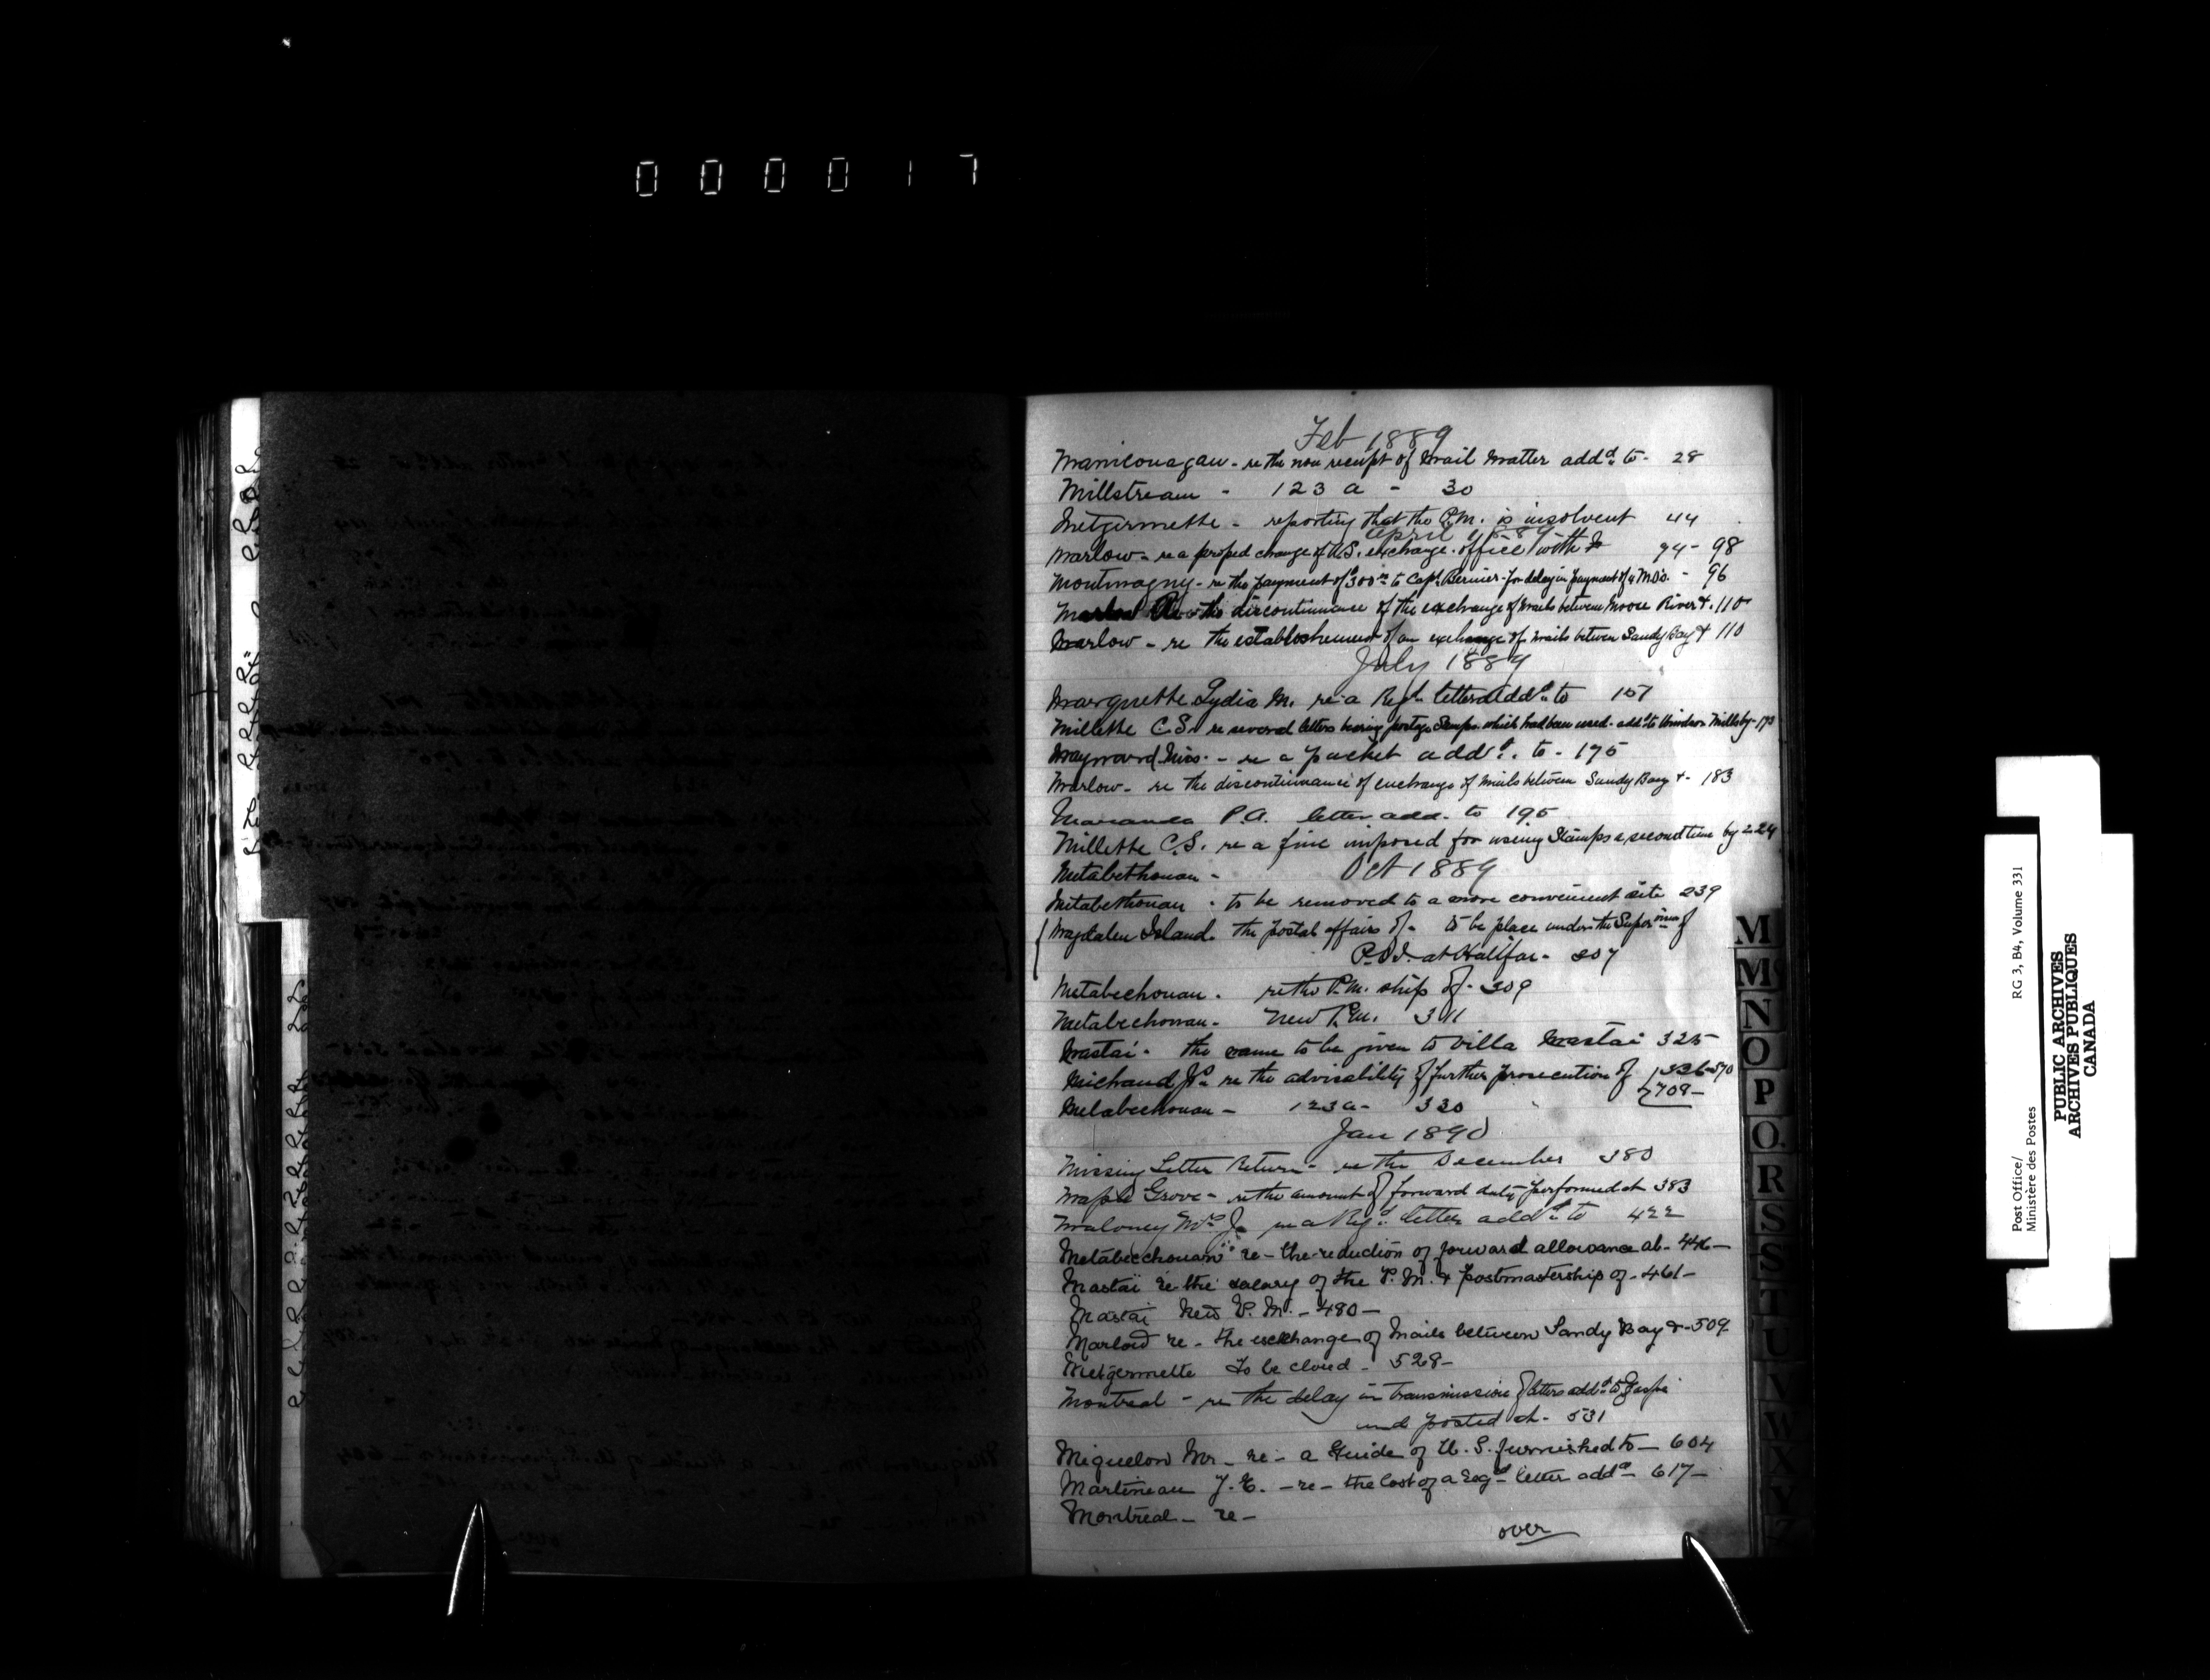 000017
Feb 1889
Manicouagan - re the non receipt of Mail Matter add^d to - 28
Millstream - 123 a - 30
Metgermette - reporting that the P.M. is insolvent 44
April 1889
Marlow - re a proped change of U.S. exchange office with 94 - 98
Montmagny - re the payment of $300 to Capt Bernier - for delay in payment of 4 M.O's. - 96
the discontinuance of the exchange of Mails between Moose River &. 110
Marlow - re the establishment of an exchange of mails between Sandy Bay & 110
July 1889
Marquette Lydia M. re a Reg^d letter add^d to 157
Millette C.S. re several letters bearing postage Stamps which had been used - add^d to Windsor Mills by - 173
Maynard Miss. - re a packet add^d. to - 175
Marlow - re the discontinuance of exchange of Mails between Sandy Bay & - 183
P.A. letter add. to 195
Millette C.S. re a fine imposed for using Stamps a second time by 224
Metabethouan - Oct 1889
Metabethouan - to be removed to a more convenient site 239
Magdalen Island. the postal affairs of - to be place under the Super^ision of
P.O.I. at Halifax - 307
Metabechouan. re the P.M. ship of - 309
Metabechouan - New P.M. 311
Mastai - the name to be given to Villa Mastai 325
Michaud J^s re the advisability of further prosecution of 326-570
709 -
Metabechouan - 123 a - 330
Jan 1890
Missing Letter Return - re the December 380
Maple Grove - re the amount of forward duty performed at 383
Maloney M^rs J. re a Reg^d letter add^d to 422
Metabecchouan re - the reduction of forward allowance at - 446 -
Mastaï re the salary of the P.M. & postmastership of - 461 -
Mastaï New P.M. - 480 -
Marlow re - the exchange of Mails between Sandy Bay & - 509
Metgermette To be closed - 528 -
Montreal - re the delay in transmission of letters add^d to Gaspé
and posted at - 531
Miquelon Mr - re - a Guide of U.S. furnished to - 604
Martineau J.E. - re - the lost of a Reg^d letter add^d - 617 -
Montreal - re -
over
M
M
N
O
P
Q
R
S
S
T
U
V
W
X
Y
Z
Post Office/ RG 3, B4, Volume 331
Ministère des Postes
PUBLIC ARCHIVES
ARCHIVES PUBLIQUES
CANADA